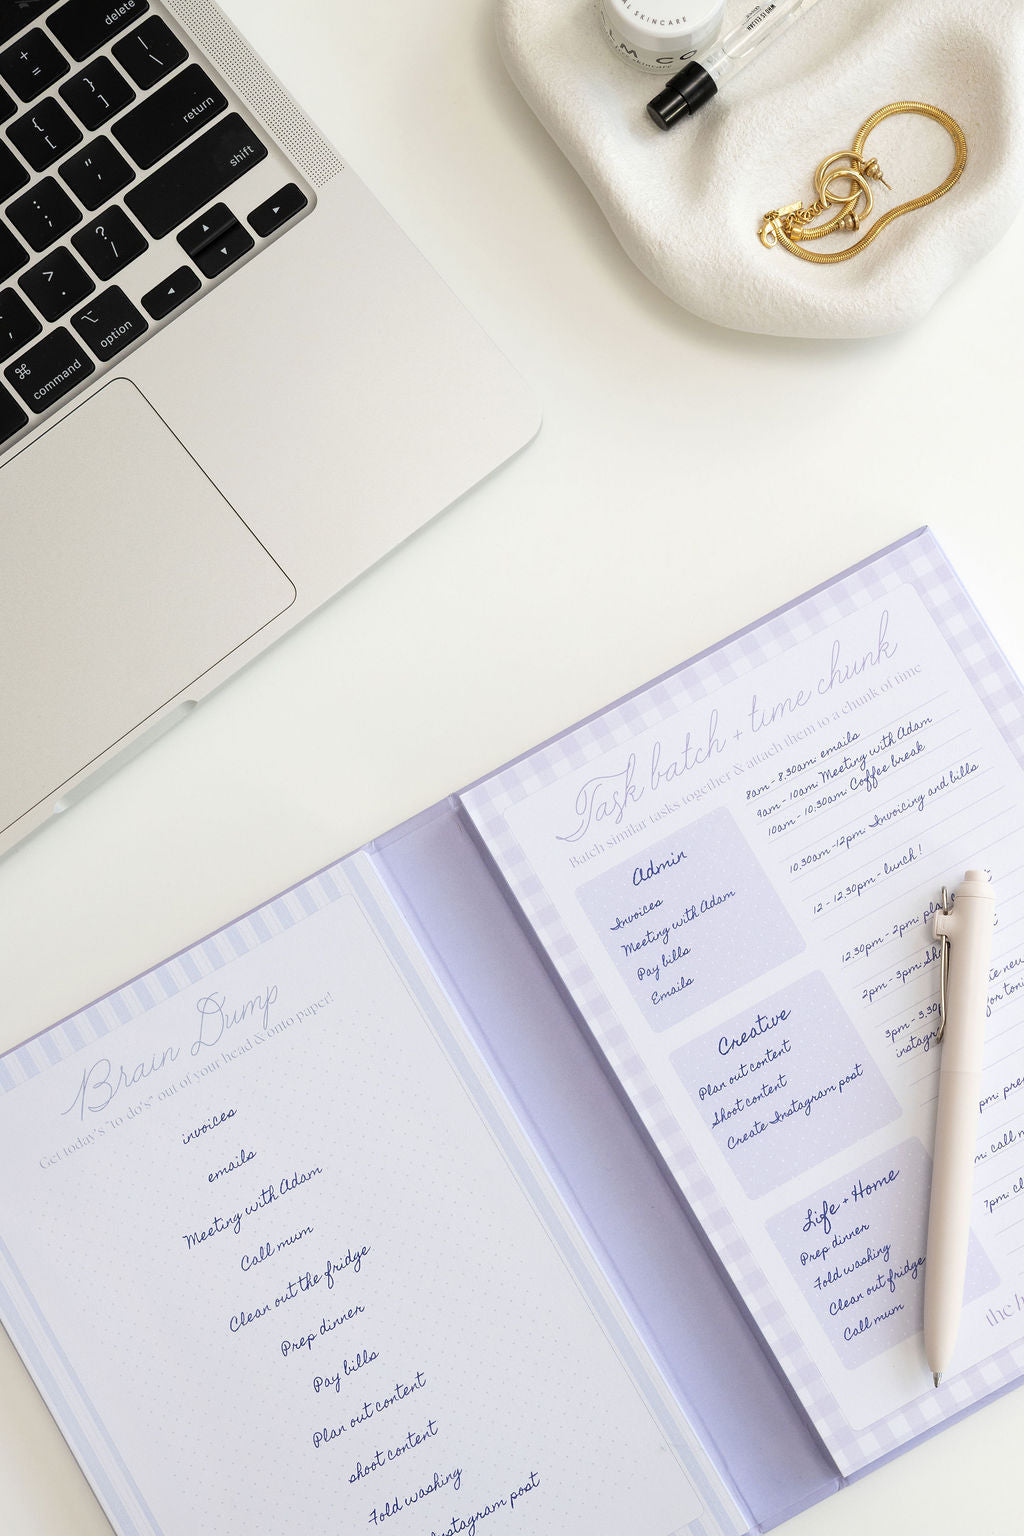 delete
+
=
|
\
}
]
return
{
[
"
'
shift
:
;
?
/
>
.
option
command
SKINCARE
WHO IS ELIJAH
Brain Dump
Get today's "to do's" out of your head & onto paper!
invoices
emails
Meeting with Adam
Call mum
Clean out the fridge
Prep dinner
Pay bills
Plan out content
shoot content
Fold washing
Instagram post
Task batch + time chunk
Batch similar tasks together & attach them to a chunk of time
Admin
Invoices
Meeting with Adam
Pay bills
Emails
Creative
Plan out content
Shoot content
Create Instagram post
Life + Home
Prep dinner
Fold washing
Clean out fridge
Call mum
8am - 8.30am: emails
9am - 10am: Meeting with Adam
10am - 10.30am: Coffee break
10.30am - 12pm: Invoicing and bills
12 - 12.30pm - lunch!
12.30pm - 2pm:
2pm - 3pm:
3pm - 3.30p
instagr
pm:
call
7pm:
the